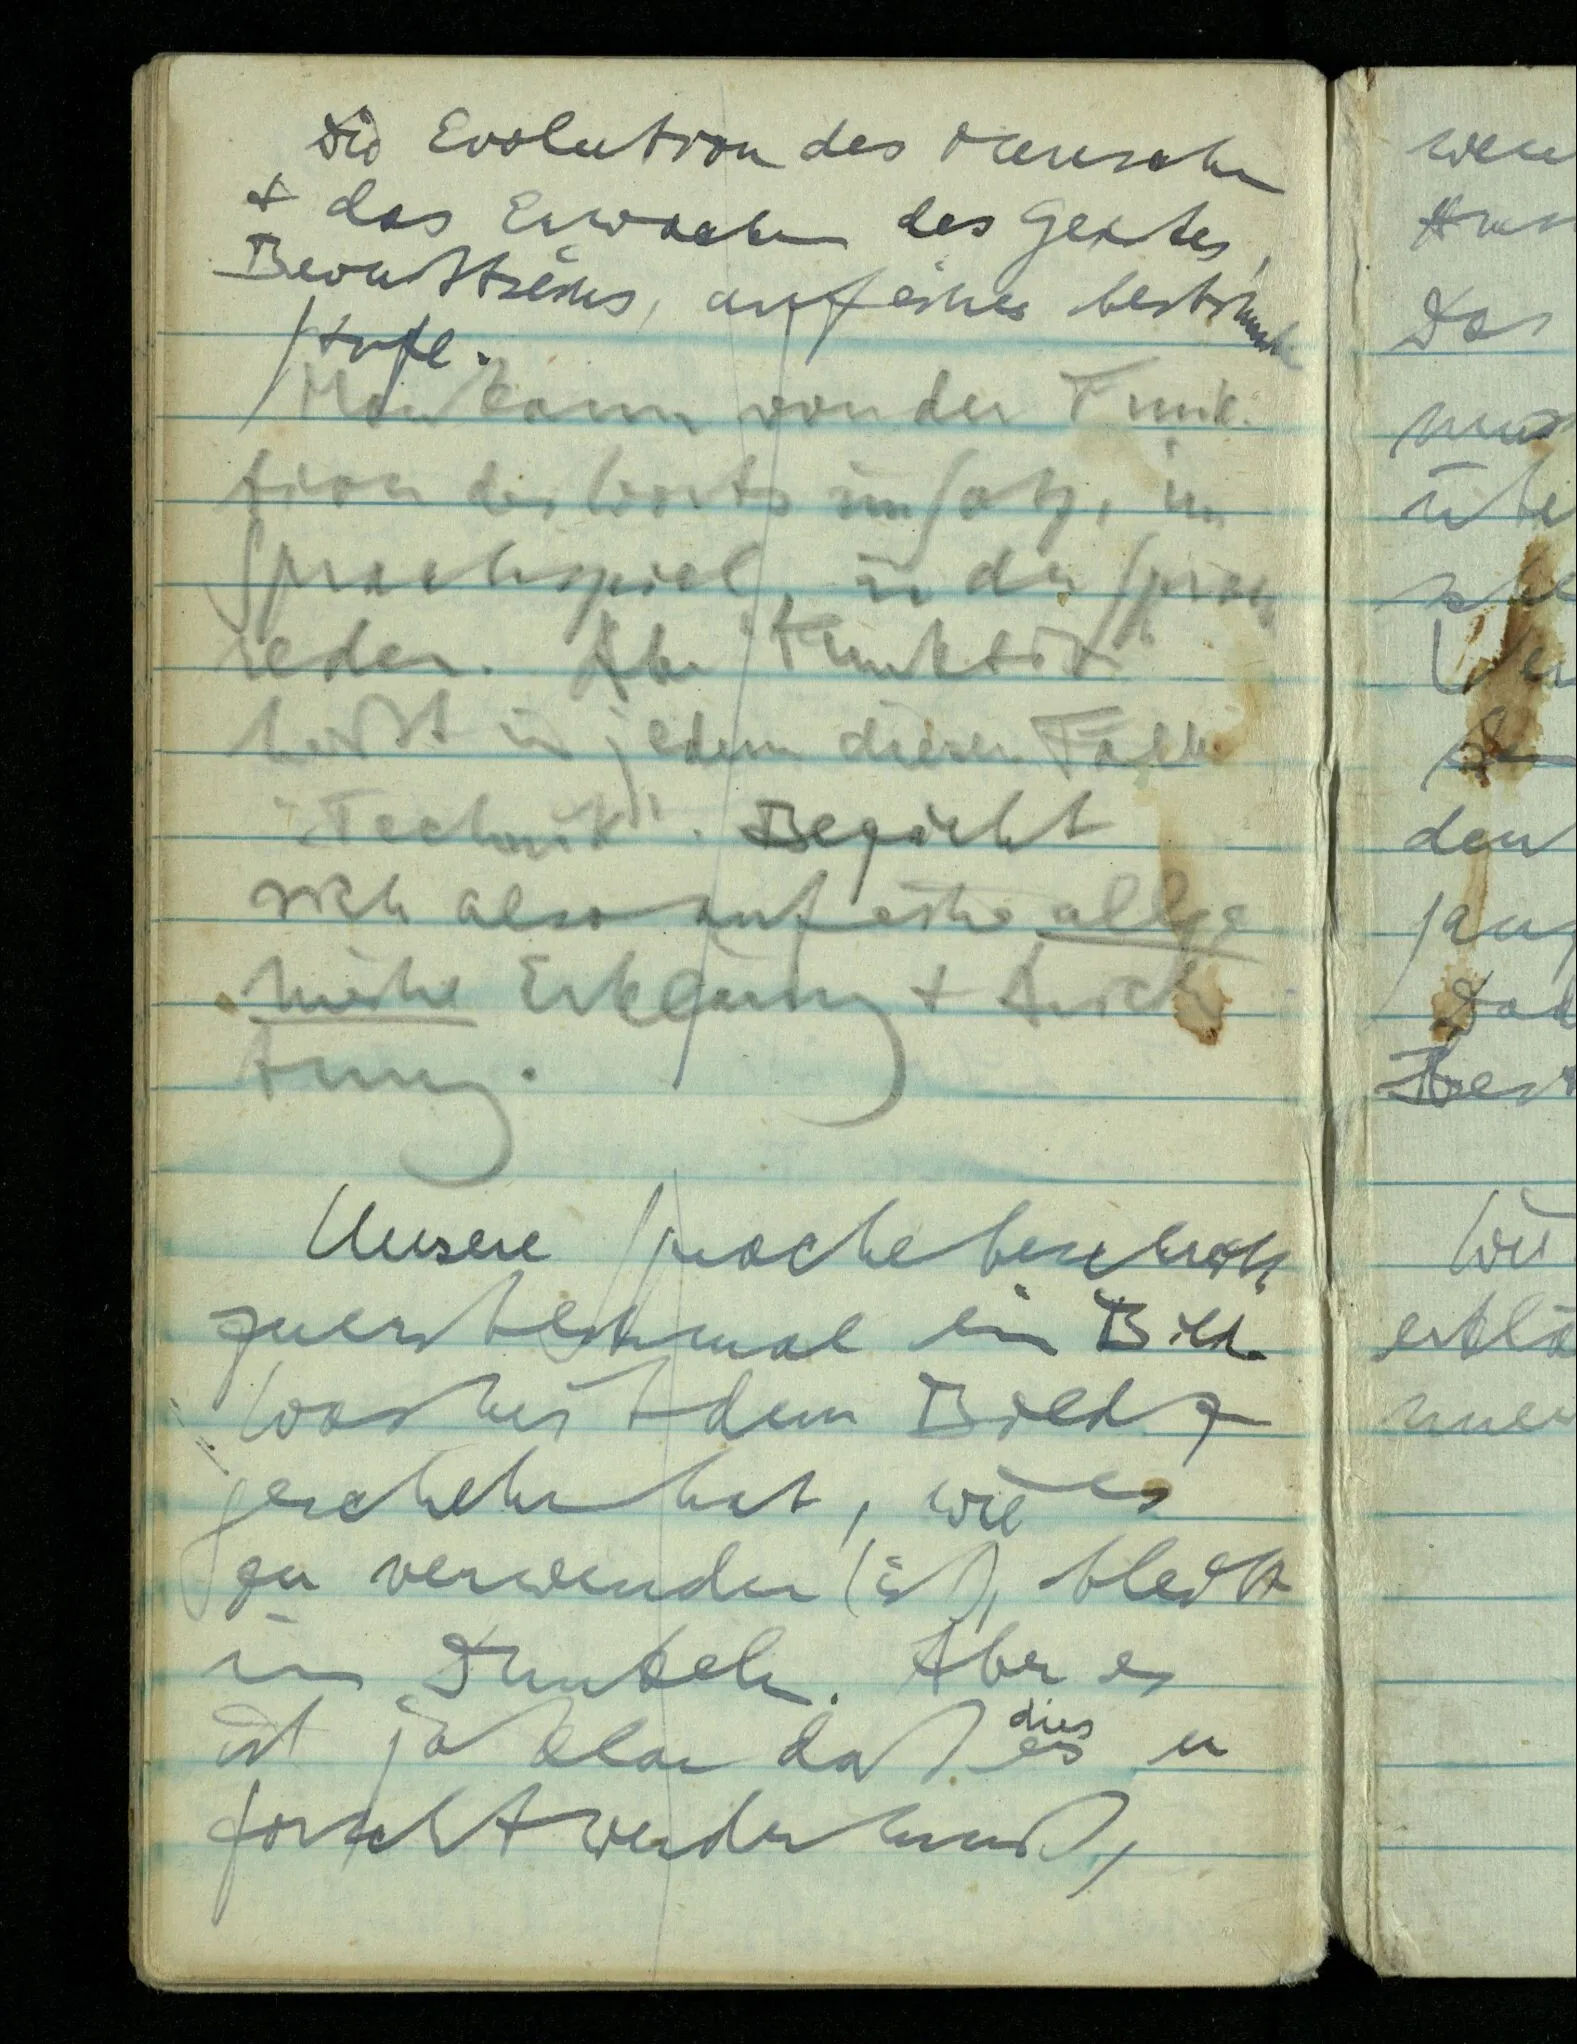 Die Evolution des Menschen
+ das Erwachen des Geistes,
Bewußtseins, auf einer bestimmten
Stufe.
Man kann von der Funk-
tion des Worts im Satz, im
Sprachspiel, in der Sprache
reden. Aber "Funktion"
heißt in jedem dieser Fälle
"Technik". Bezieht
sich also auf eine allge
meine Erklärung + Abrich
tung.
Unsere Sprache beschreibt
zuerst einmal ein Bild.
Was mit dem Bild zu
geschehen hat, wie es
zu verwenden (ist), bleibt
im Dunkeln. Aber es
ist ja klar daß dies er
es
forscht werden muß,
wen
Das
den
Wie